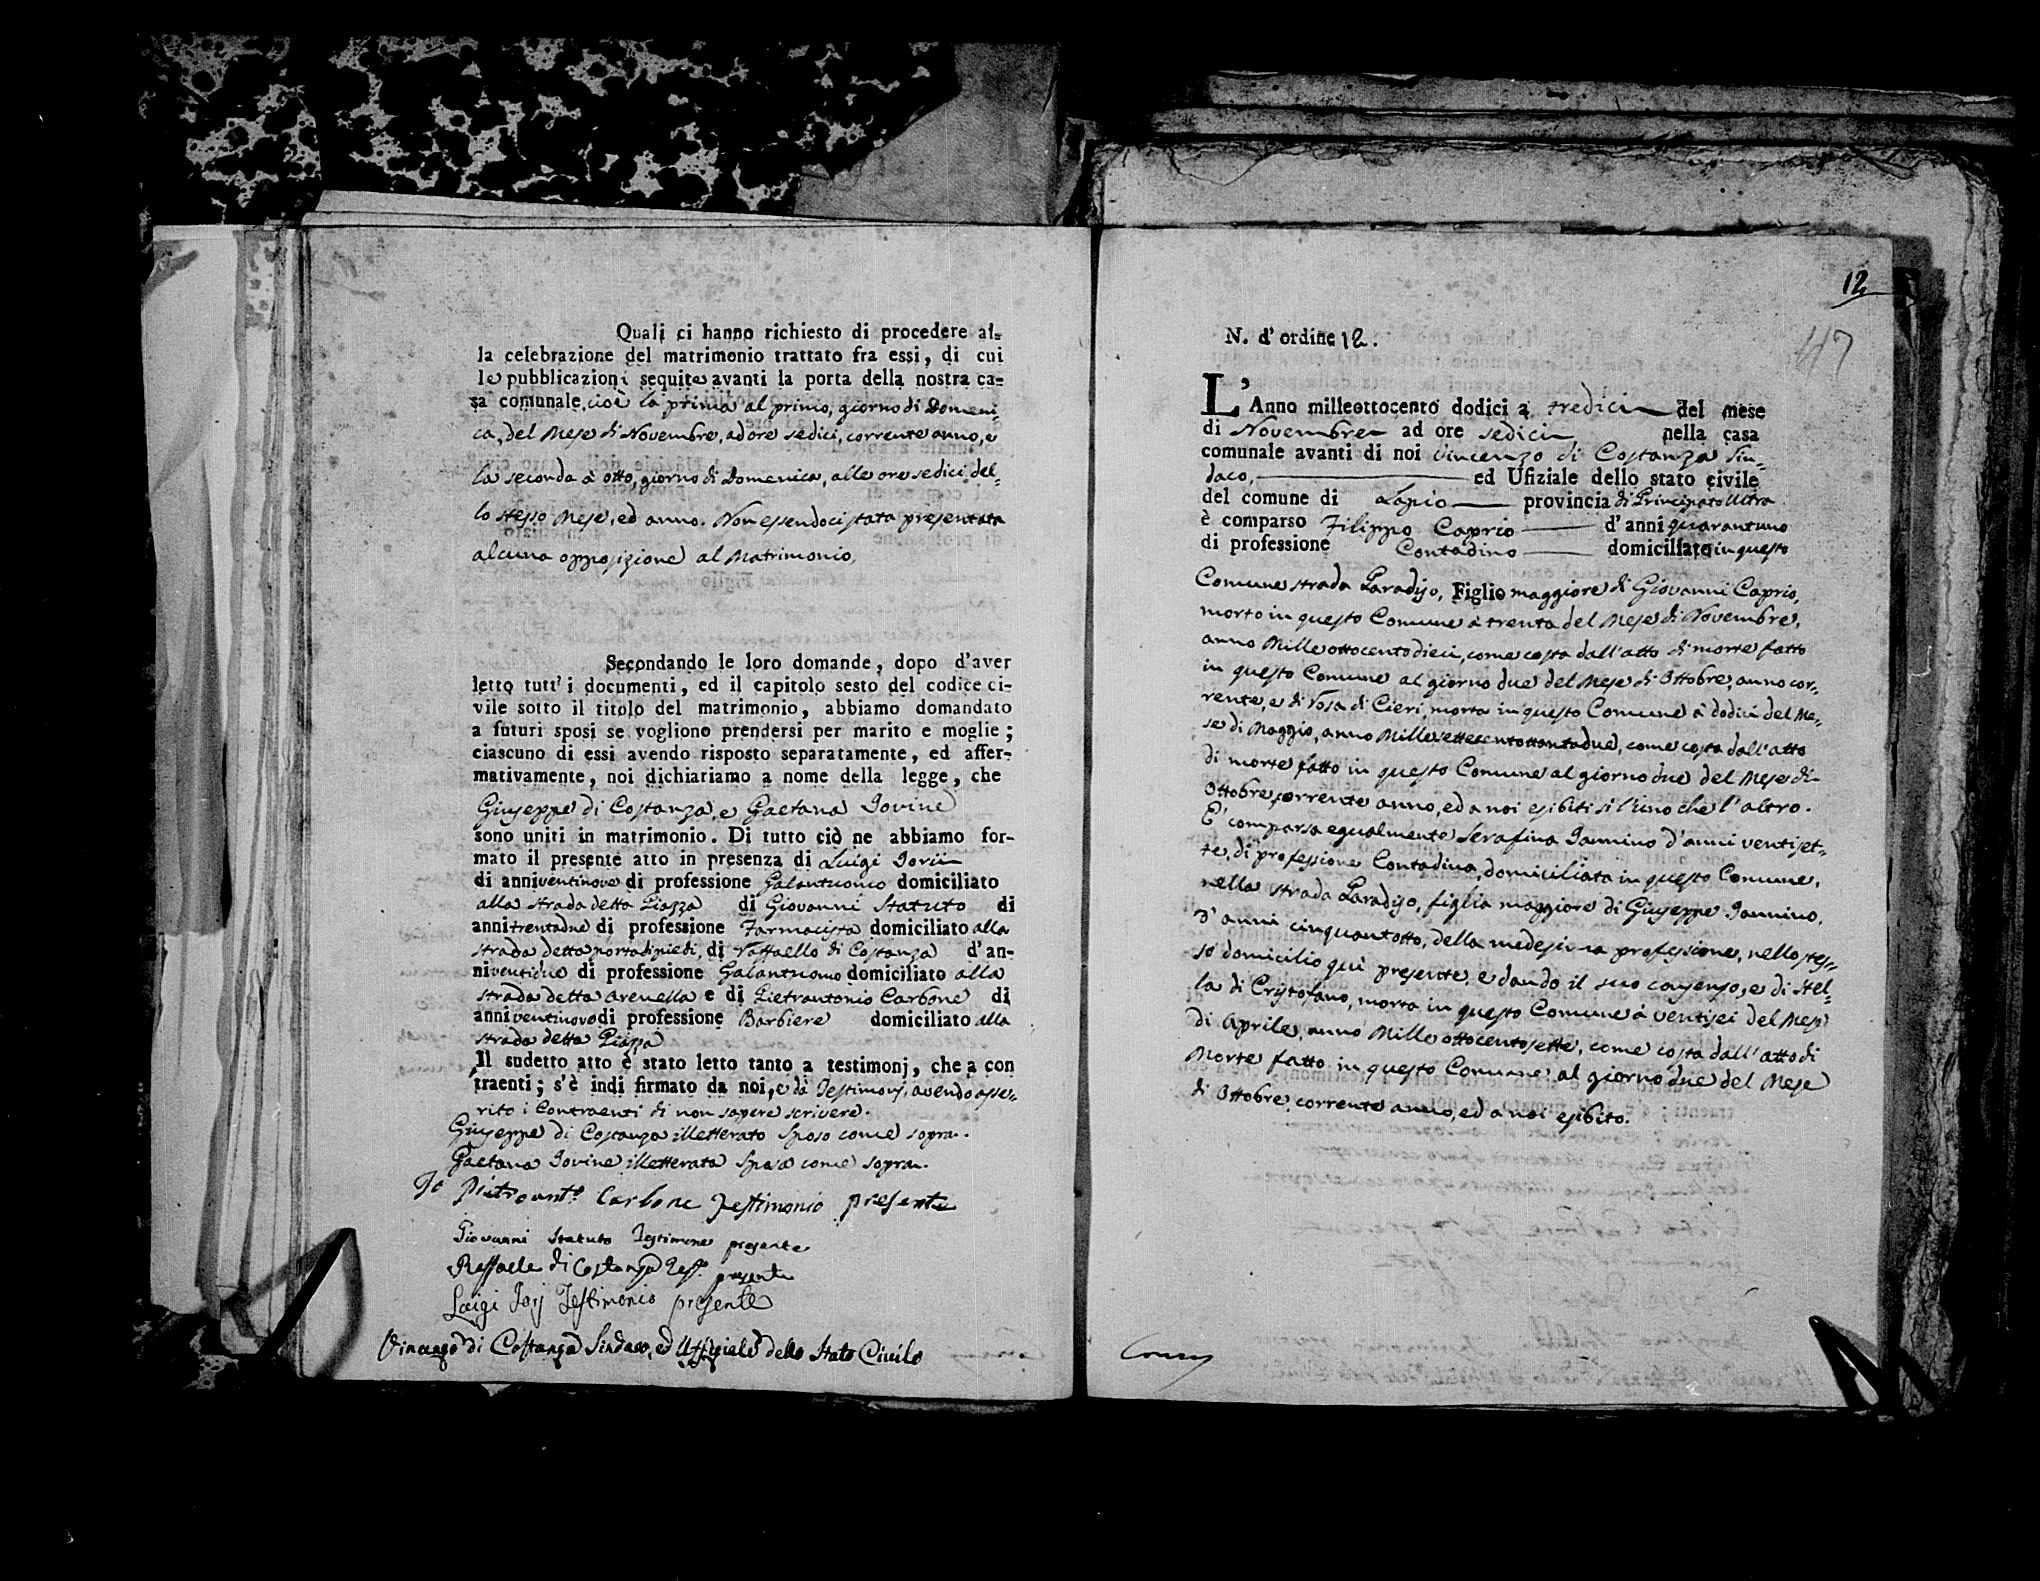 Quali ci hanno richiesto di procedere al=
la celebrazione del matrimonio trattato fra essi, di cui
le pubblicazioni sequite avanti la porta della nostra ca=
sa comunale, cioè la prima al primo, giorno di Domeni=
ca, del Mese di Novembre, ad ore sedici, corrente anno, e
la seconda à otto, giorno di Domenica, alle ore sedici del=
lo stesso Mese, ed anno. Non essendoci stata presentata
alcuna opposizione al Matrimonio,
Secondando le loro domande, dopo d'aver
letto tutt'i documenti, ed il capitolo sesto del codice ci=
vile sotto il titolo del matrimonio, abbiamo domandato
a futuri sposi se vogliono prendersi per marito e moglie;
ciascuno di essi avendo risposto separatamente, ed affer=
mativamente, noi dichiariamo a nome della legge, che
Giuseppe di Costanza, e Gaetana Iovine
sono uniti in matrimonio. Di tutto ciò ne abbiamo for-
mato il presente atto in presenza di Luigi Iorii
di anni ventinove di professione Galantuomo domiciliato
alla strada detta Piazza di Giovanni Statuto di
anni trentadue di professione Farmacista domiciliato alla
strada detta portadipiedi, di Raffaello di Costanza d'an-
ni ventidue di professione Galantuomo domiciliato alla
strada detta arenella e di Pietrantonio Carbone di
anni ventinove di professione Barbiere domiciliato alla
strada detta Piazza
Il sudetto atto è stato letto tanto a testimonj, che a con
traenti; s'è indi firmato da noi, e dà Testimonj, avendo asse=
rito i Contraenti di non sapere scrivere.
Giuseppe di Costanza illetterato Sposo come sopra.
Gaetana Iovine illetterata Sposa come sopra.
Io Pietroant.º Carbone Testimonio presente
Giovanni Statuto Testimone presente
Raffaele di Costanza Test.º presente
Luigi Iorj Testimonio presente
Vincenzo di Costanza Sindaco, ed Uffiziale dello Stato Civile
12
47
N. d'ordine 12.
L'Anno milleottocento dodici a tredici del mese
di Novembre ad ore sedici, nella casa
comunale avanti di noi Vincenzo di Costanza Sin=
daco, ed Ufiziale dello stato civile
del comune di Lapio provincia di Principato Ultra
è comparso Filippo Caprio d'anni quarantuno
di professione Contadino domiciliato in questo
Comune strada Paradiso, Figlio maggiore di Giovanni Caprio,
morto in questo Comune à trenta del Mese di Novembre,
anno Mille ottocentodieci, come costa dall'atto di morte fatto
in questo Comune al giorno due del Mese di Ottobre, anno cor=
rente, e di Rosa di Cieri, morta in questo Comune à dodici del Me=
se di Maggio, anno Mille settecentottantadue, come costa dall'atto
di morte fatto in questo Comune al giorno due del Mese di
Ottobre, corrente anno, ed a noi esibiti sì l'uno che l'altro.
E' comparsa egualmente Serafina Iannino d'anni ventiset=
te, di professione Contadina, domiciliata in questo Comune,
nella strada Paradiso, figlia maggiore di Giuseppe Iannino,
d'anni cinquantotto, della medesima professione, nello stes=
so domicilio quì presente, e dando il suo consenso, e di Stel=
la di Cristofano, morta in questo Comune à ventisei del Mese
di Aprile, anno Mille ottocentosette, come costa dall'atto di
Morte fatto in questo Comune al giorno due del Mese
di Ottobre, corrente anno, ed a noi esibito.